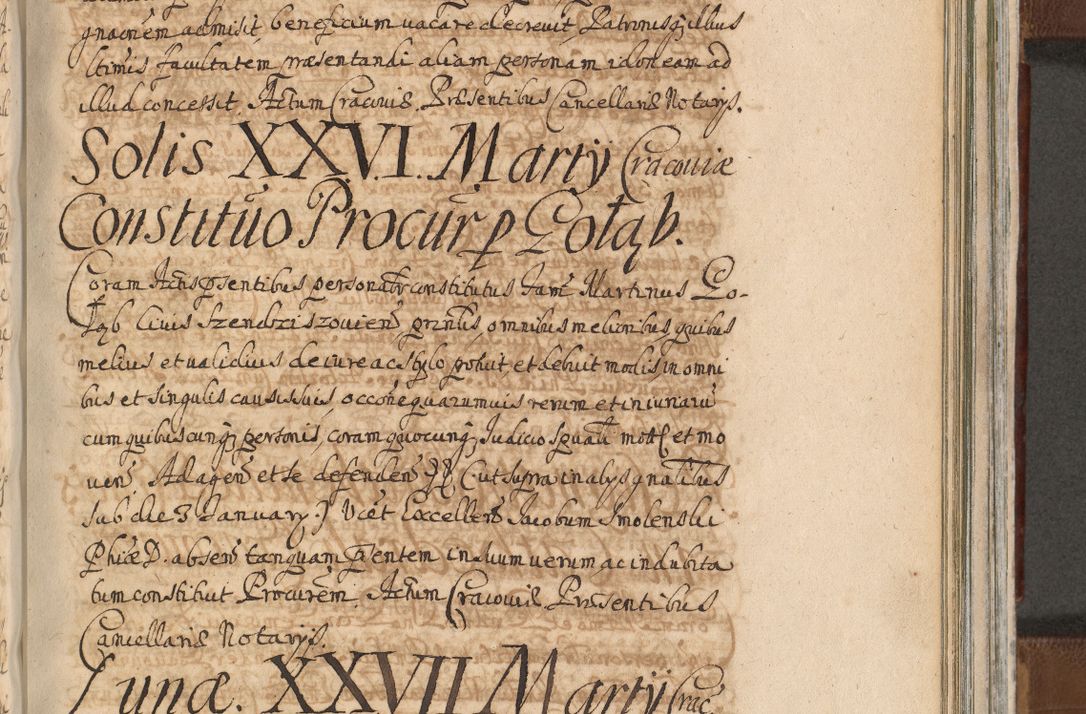 gnaonem admisit, beneficium vacare decrevit, Patronisq; illius
ltimis facultatem præsentandi aliam personam idoneam ad
illud concessit. Actum Cracoviæ. Præsentibus Cancellariæ Notarijs.
Solis XXVI. Martij Cracoviæ
Constitūo Procur̄ p Gołąb.
Coram Actis p̄sentibus personalr̄ constitutus Fam̄ Martinus Go-
łąb Civis Szendziszovien̄ prin̄lis, omnibus melioribus, quibus
melius et validius de iure ac stylo potuit, et debuit modis, in omni
bus et singulis causis suis, occōne quarumvis rerum et iniuriarū
cum quibuscunq; personis, coram quocunq; Judicio spuali mott et mo
ven̄. Ad agen̄ et se defenden̄ (ut supra in alijs gnalibus
sub die 3 January) Vcet Excellen̄ Jacobum Smolenski
Phiæ D. absen̄ tanquam p̄entem in suum verum ac indubita
tum constituit Procurem̄. Actum Cracoviæ. Præsentibus
Cancellariæ Notarijs.
Lunæ. XXVII Martij Crac.